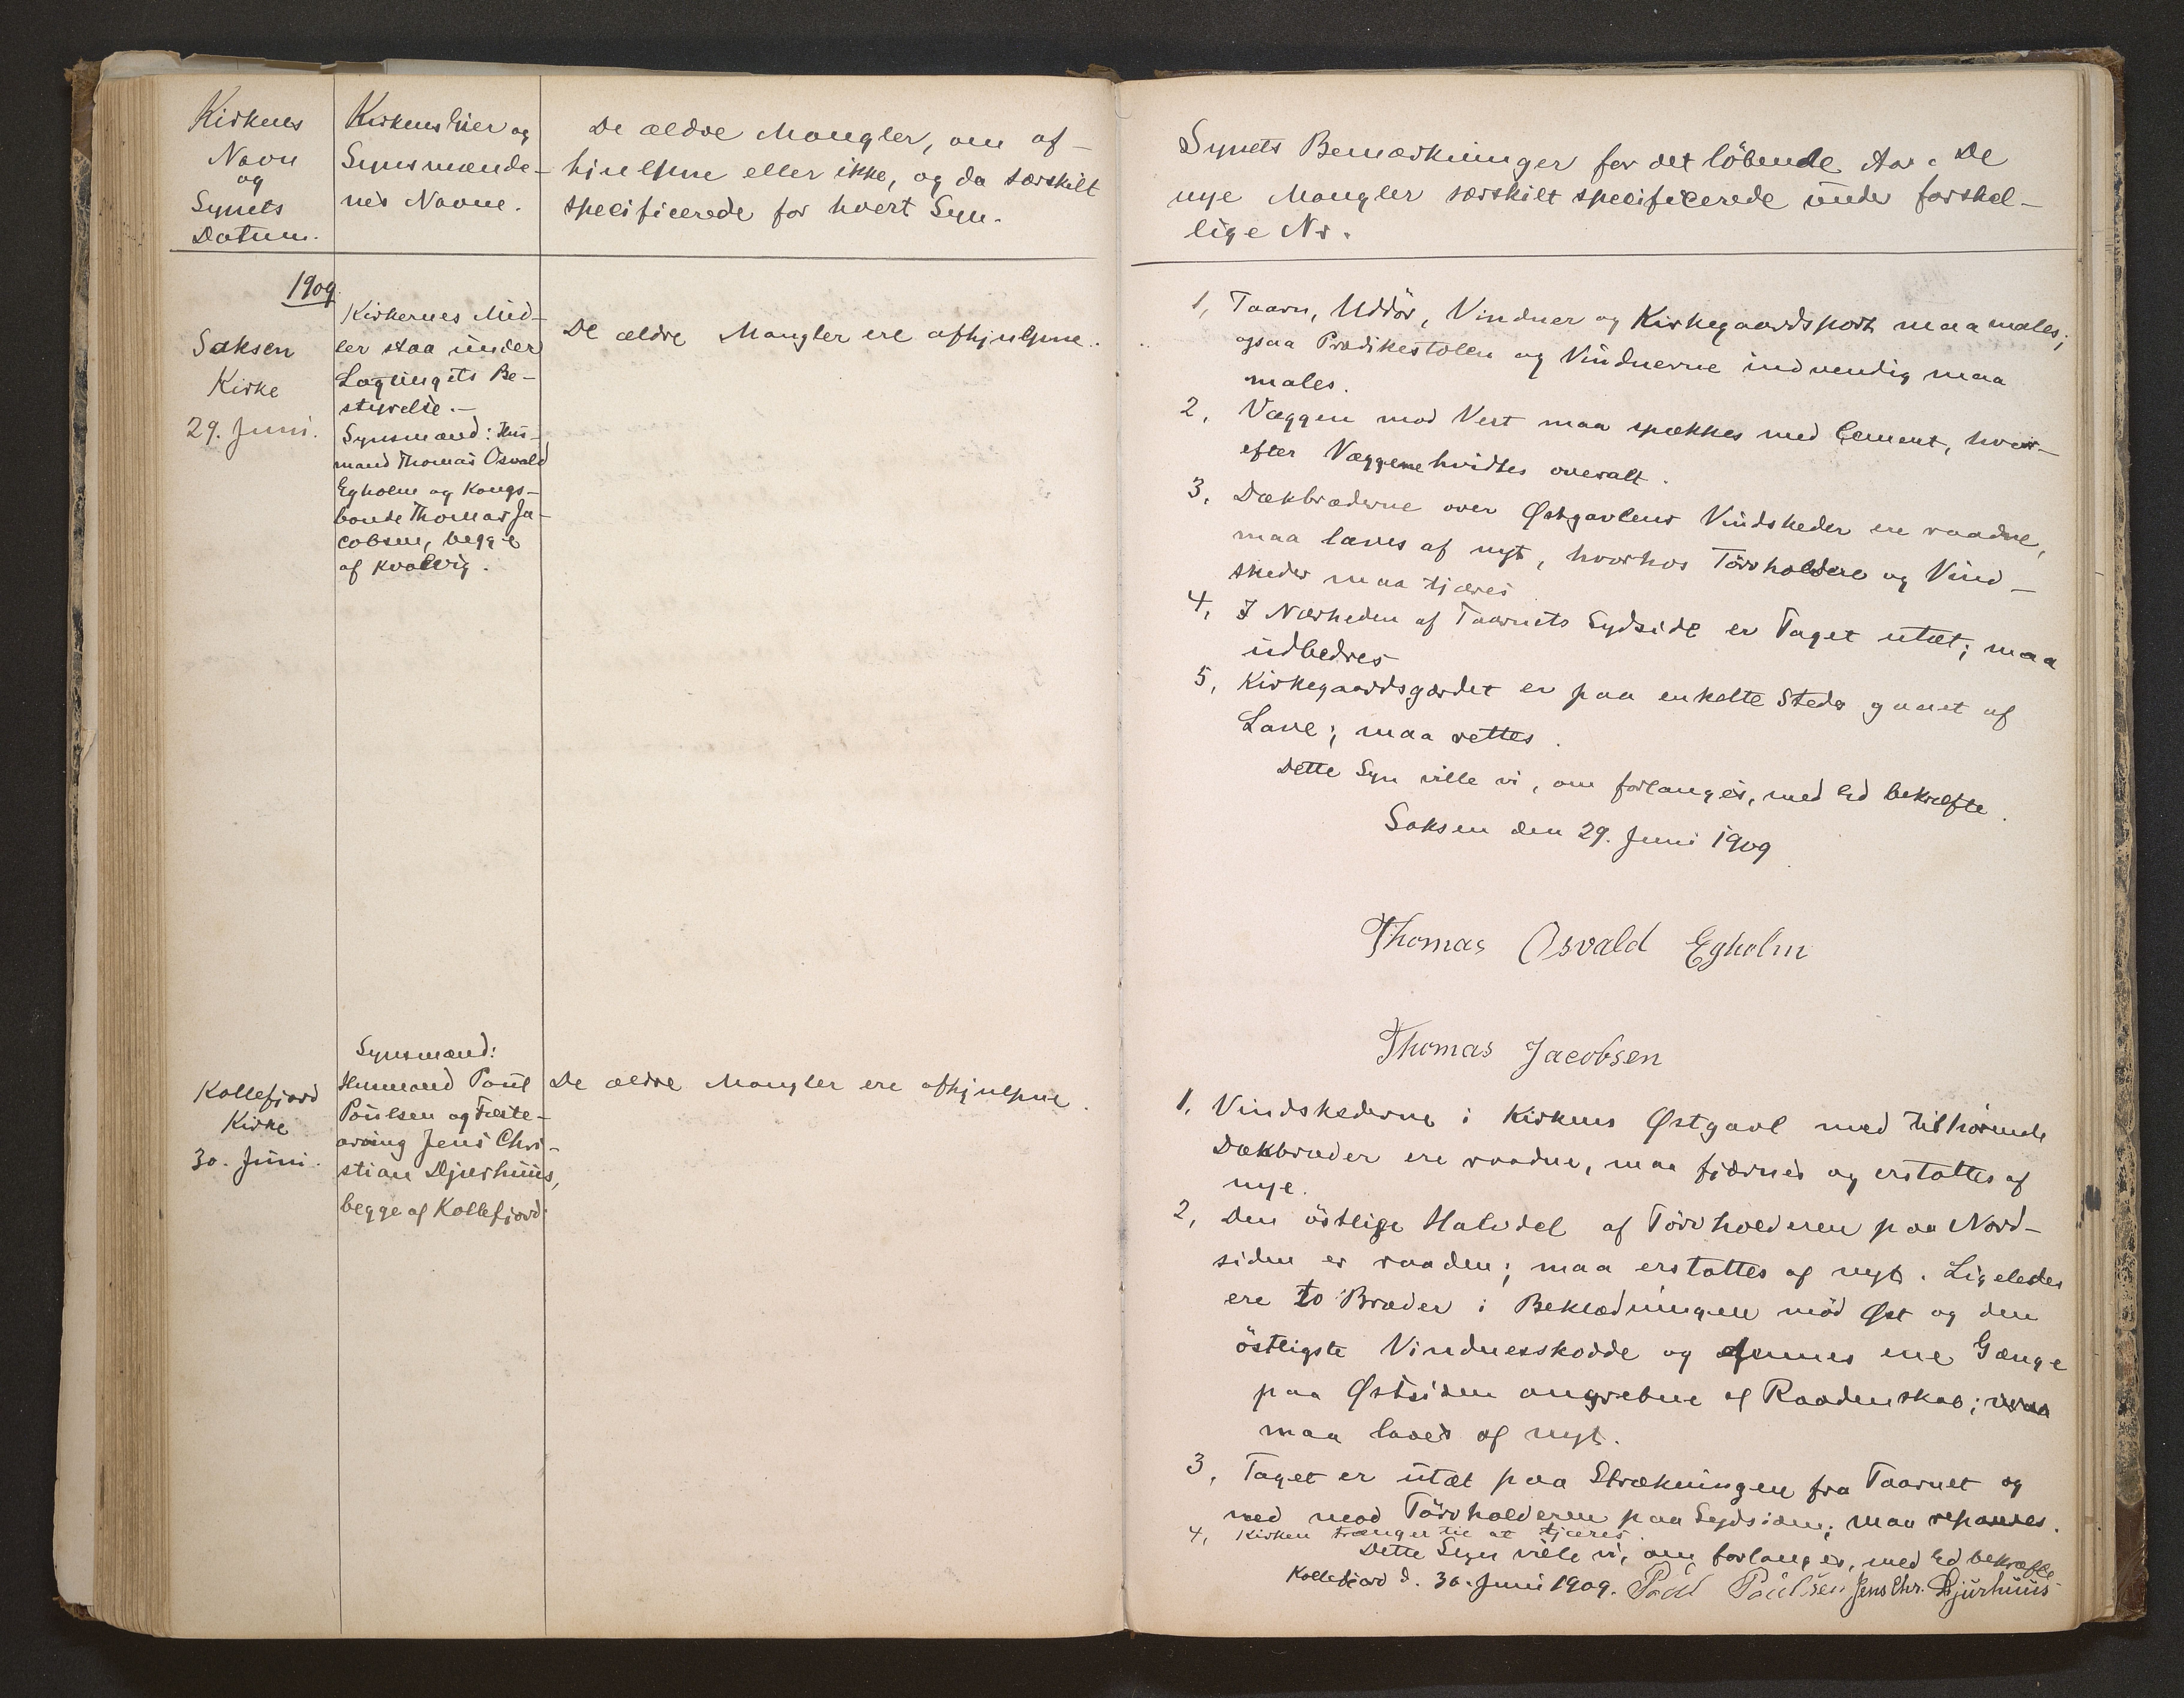 Kirkens
Navn
og
Synets
Datum.
Kirkens Eier og
Synsmænde-
nes Navne.
De ældre Mangler, om af-
hjulpne eller ikke, og da særskilt
specificerede for hvert Syn.
1909
Saksen
Kirke
29. Juni.
Kirkernes Mid-
ler staa under
Lagtingets Be-
styrelse.-
Synsmænd: Hus-
mand Thomas Osvald
Egholm og Kongs-
bonde Thomas Ja-
cobsen, begge
af Kvalvig.
De ældre Mangler ere afhjulpne.
Kollefjord
Kirke
30. Juni.
Synsmænd:
Husmand Poul
Poulsen og Fæste-
arving Jens Chri-
stian Djurhuus,
begge af Kollefjord.
De ældre Mangler ere afhjulpne.
Synets Bemærkninger for det löbende Aar. De
nye Mangler særskilt specificerede under forskel-
lige Nr.
1, Taarn, Uddör, Vinduer og Kirkegaardsport maa males;
ogsaa Prædikestolen og Vinduerne indvendig maa
males.
2, Væggen mod Vest maa spækkes med Cement, hvor-
efter Væggene hvidtes overalt.
3, Dækbræderne over Østgavlens Vindskeder ere raadne,
maa laves af nyt, hvorhos Törvholdere og Vind-
skeder maa tjæres
4, I Nærheden af Taarnets Sydside er Taget utæt; maa
udbedres
5, Kirkegaardsgærdet er paa enkelte Steder gaaet af
Lave; maa rettes.
Dette Syn ville vi, om forlanges, med Ed bekræfte.
Saksen den 29. Juni 1909
Thomas Osvald Egholm
Thomas Jacobsen
1, Vindskederne i Kirkens Østgavl med tilhörende
Dækbræder ere raadne, maa fjærnes og erstattes af
nye.
2, Den östlige Halvdel af Törvholderen paa Nord-
siden er raaden; maa erstattes af nyt. Ligeledes
ere to Bræder i Beklædningen mod Øst og den
östligste Vinduesskodde og ene Gænge
paa Østsiden angrebne af Raadenskab;
maa laves af nyt.
3, Taget er utæt paa Strækningen fra Taarnet og
ned mod Törvholderen paa Sydsiden; maa repareres.
4, Kirken trænger til at tjæres.
Dette Syn ville vi, om forlanges, med Ed bekræfte
Kollefjord d. 30. Juni 1909. Poul Poulsen Jens Chr. Djurhuus